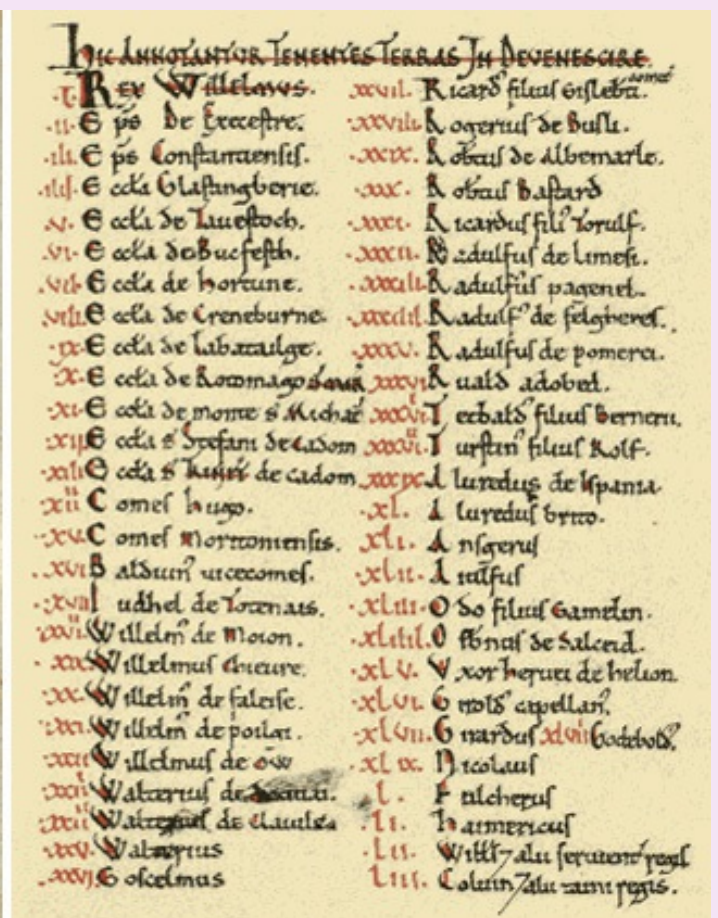 HIC ANNOTANTUR TENENTES TERRAS IN DEVENESCIRE.
.I. REX Willelmus.
.II. Eps de Execestre.
.III. Eps Constantiensis.
.IIII. Eccła Glastingberie.
.V. Eccła de Tauestoch.
.VI. Eccła de Bucfesth.
.VII. Eccła de hortune.
.VIII. Eccła de Creneburne.
.IX. Eccła de labatailge.
.X. Eccła de Rotomago
.XI. Eccła de monte s Michaẽ
.XII. Eccła s Stefani de cadom
.XIII. Eccła s de cadom
.XIIII. Comes hugo.
.XV. Comes moritoniensis.
.XVI. Balduin uicecomes.
.XVII. Iudhel de Totenais.
.XVIII. Willelm̃ de moion.
.XIX. Willelmus chieure.
.XX. Willelm̃ de faleise.
.XXI. Willelm̃ de poilgi.
.XXII. Willelmus de ow
.XXIII. Walterius de
.XXIIII. Walterius de clauile.
.XXV. Walterius
.XXVI. Goscelmus
.XXVII. Ricard filius Gislebti. comit
.XXVIII. Rogerius de Busli.
.XXIX. Robtus de Albemarle.
.XXX. Robtus Bastard
.XXXI. Ricardus fili Torulf.
.XXXII. Radulfus de limesi.
.XXXIII. Radulfus pagenel.
.XXXIIII. Radulf de felgheres.
.XXXV. Radulfus de pomerei.
.XXXVI. Ruald adobed.
.XXXVII. Tetbald filius Bernerii.
.XXXVIII. Turstin filius Rolf.
.XXXIX. Aluredus de Ispania.
.XL. Aluredus brito.
.XLI. Ansgerus
.XLII. Aiulfus
.XLIII. Odo filius Gamelin.
.XLIIII. Osbnus de Salceid.
.XLV. Vxor heruei de helion.
.XLVI. Girold capellan.
.XLVII. Girardus XLVIII Godebold.
.XLIX. Nicolaus
.L. Fulcherus
.LI. haimericus
.LII. Willi ⁊ alii seruient regis
.LIII. Coluin ⁊ alii taini regis.